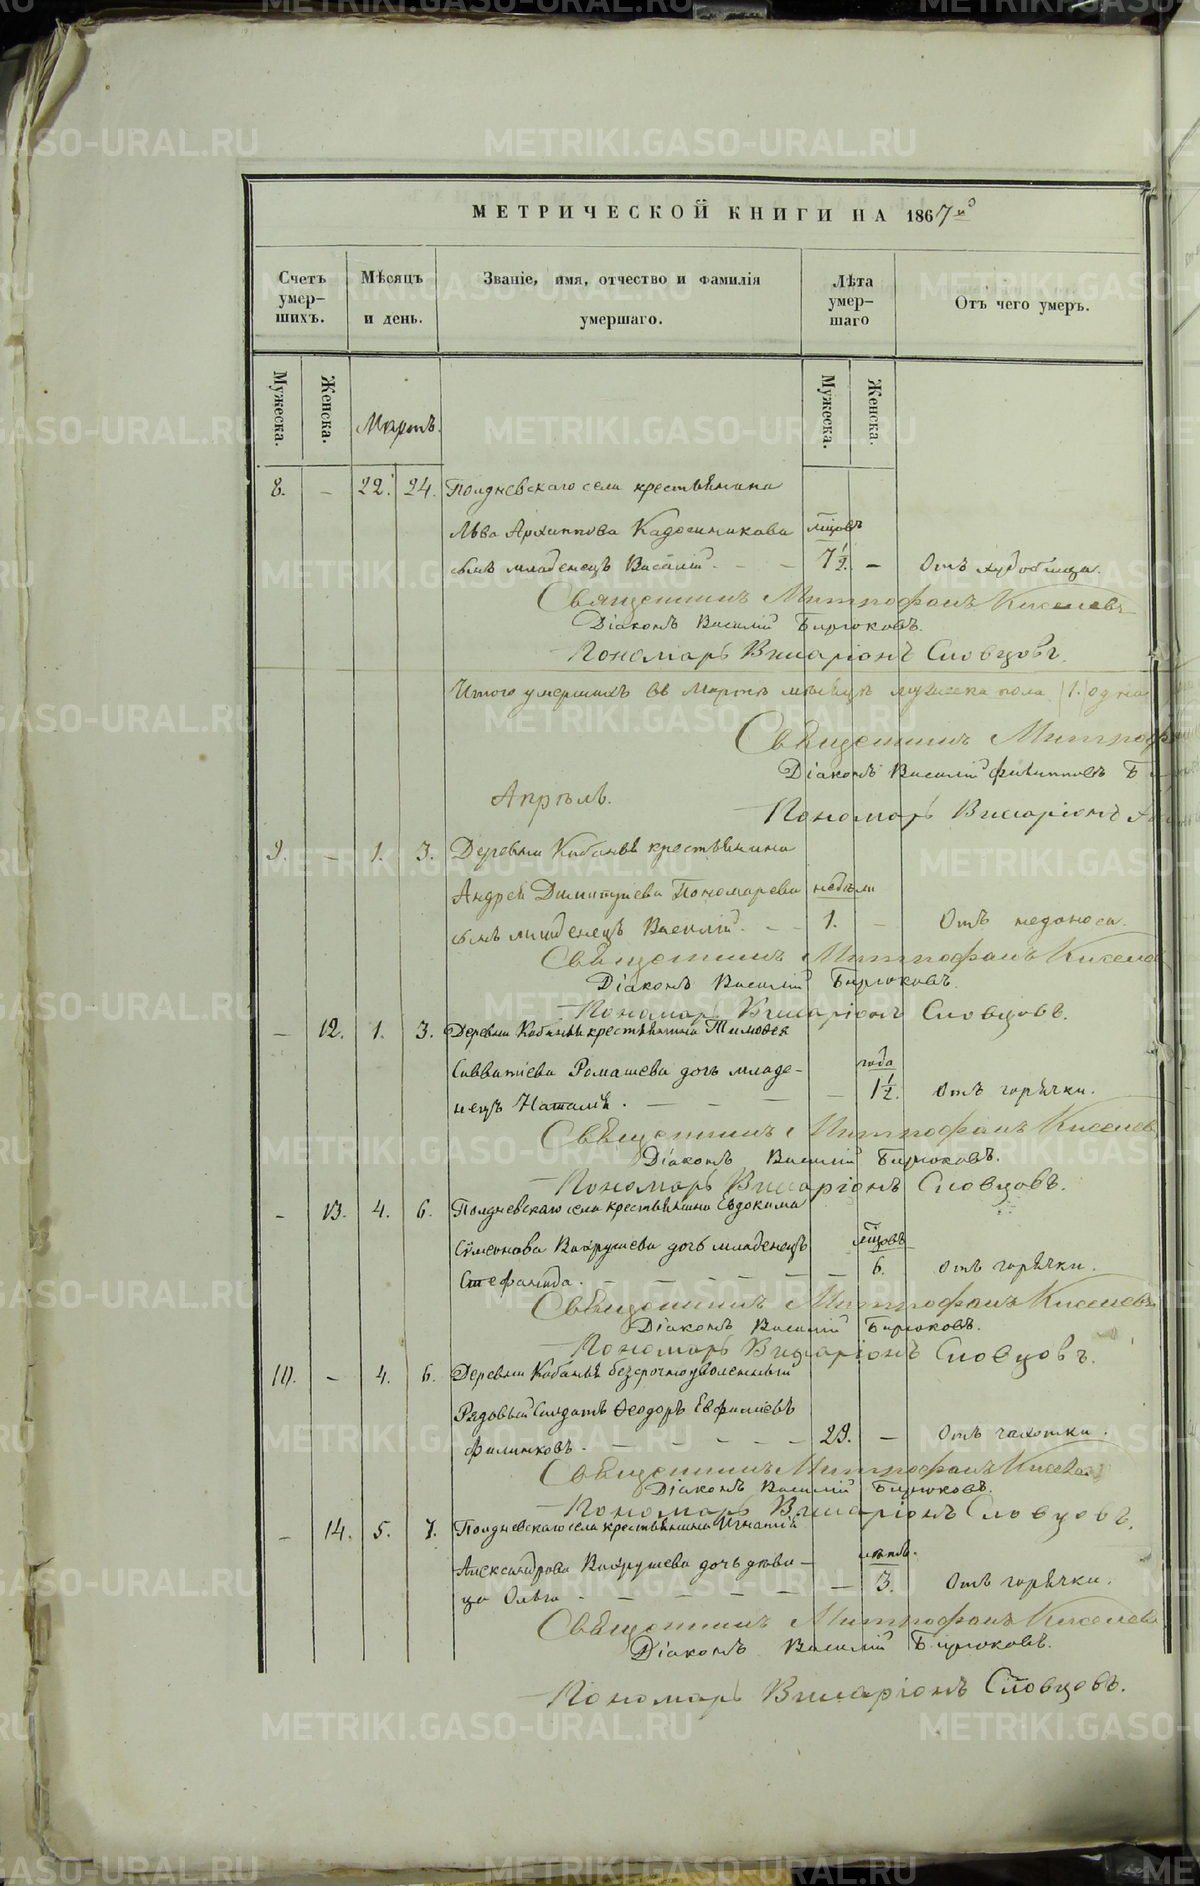 МЕТРИЧЕСКОЙ КНИГИ НА 1867й
Счетъ умер-шихъ.
Мѣсяцъ и день.
Званіе, имя, отчество и фамилія умершаго.
Лѣта умер-шаго
Отъ чего умеръ.
Мужеска. Женска.
Мартъ.
Мужеска. Женска.
8. – 22. 24. Полдневскаго села крестьянина
Льва Архиппова мцовъ
сынъ младенецъ Василій. – – 7½. –
Священникъ Митрофанъ Киселевъ
Діаконъ Василій Бирюковъ.
Пономарь Виссаріонъ Словцовъ.
Итого умершихъ въ Мартѣ мѣсяцѣ мужеска пола (1.) одинъ
Священникъ
Діаконъ Василій Филипповъ
Пономарь Виссаріонъ
Апрѣль.
9. – 1. 3. Деревни Кабаньѣ крестьянина
Андрея Димитріева Пономарева недѣли
сынъ младенецъ Василій. – – 1. – Отъ недоноса.
Священникъ Митрофанъ
Діаконъ Василій Бирюковъ.
Пономарь Виссаріонъ Словцовъ.
– 12. 1. 3. Деревни Кабаньѣ крестьянина Тимоѳея
Савватіева Ромашева дочь младе- года
нецъ Наталія. – – – – 1½. Отъ горячки.
Священникъ Митрофанъ Киселевъ
Діаконъ Василій Бирюковъ.
Пономарь Виссаріонъ Словцовъ.
– 13. 4. 6. Полдневскаго села крестьянина Евдокима
Сѵмеонова Вахрушева дочь младенецъ мцовъ
Стефанида. – – – – – – 6. Отъ горячки.
Священникъ Митрофанъ Киселевъ
Діаконъ Василій Бирюковъ.
Пономарь Виссаріонъ Словцовъ.
10. – 4. 6. Деревни Кабаньѣ безсрочноуволенный
Рядовый Солдатъ Ѳеодоръ
Филинковъ. – – – – – 29. – Отъ чахотки.
Священникъ Митрофанъ
Діаконъ Василій Бирюковъ.
Пономарь Виссаріонъ Словцовъ.
– 14. 5. 7. Полдневскаго села крестьянина Игнатія
Александрова Вахрушева дочь дѣви- лѣтъ.
ца Ольга – – – – – 3. Отъ горячки.
Священникъ Митрофанъ Киселевъ
Діаконъ Василій Бирюковъ.
Пономарь Виссаріонъ Словцовъ.
METRIKI.GASO-URAL.RU